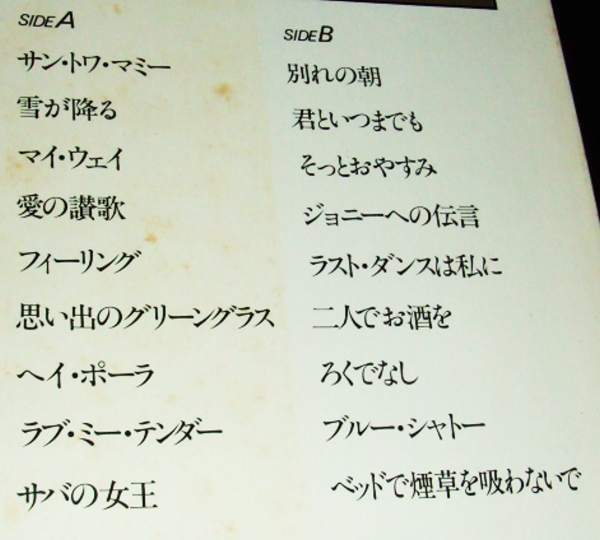 SIDE A
サン・トワ・マミー
雪が降る
マイ・ウェイ
愛の讃歌
フィーリング
思い出のグリーングラス
ヘイ・ポーラ
ラブ・ミー・テンダー
サバの女王
SIDE B
別れの朝
君といつまでも
そっとおやすみ
ジョニーへの伝言
ラスト・ダンスは私に
二人でお酒を
ろくでなし
ブルー・シャトー
ベッドで煙草を吸わないで